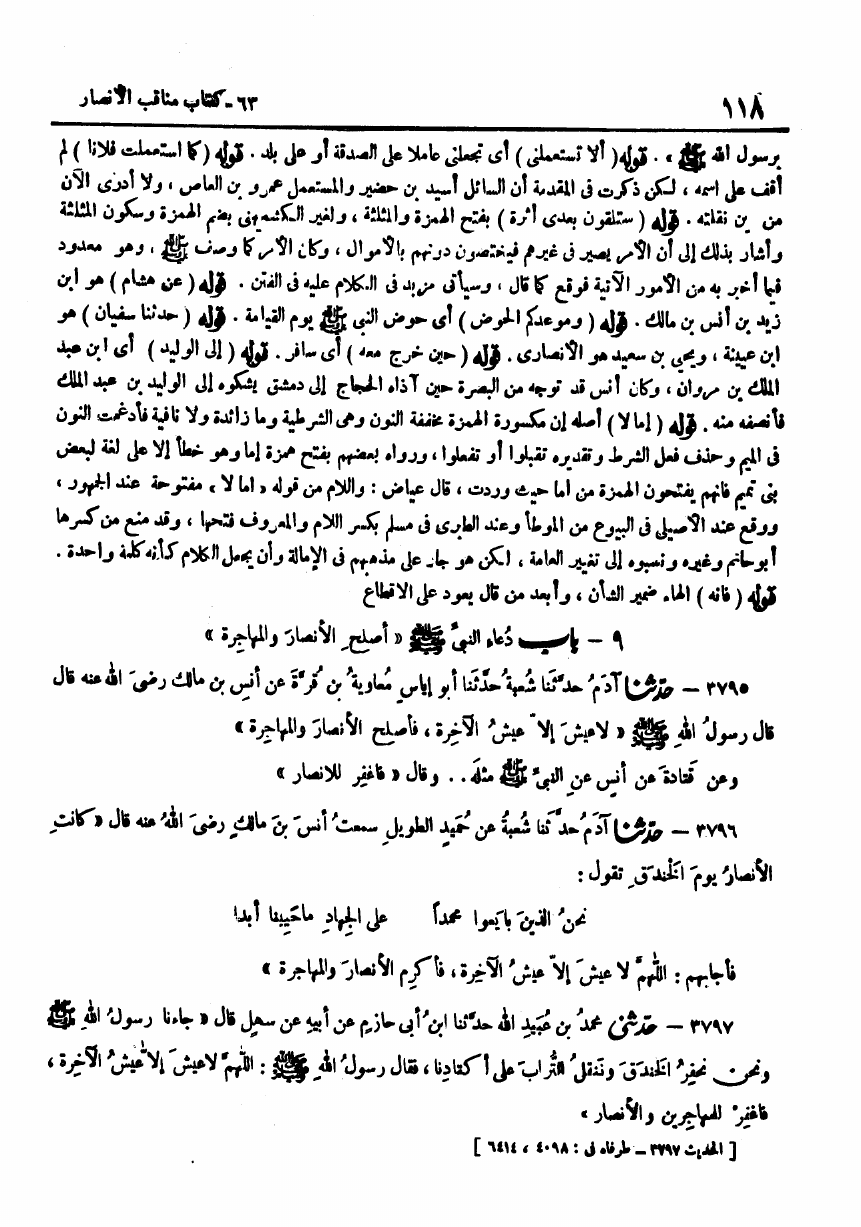 ١١٨ ٦٣ - كتاب مناقب الأنصار
برسول الله ﷺ » . قوله ( ألا تستعملنى ) أى تجعلنى عاملا على الصدقة أو على بلد . قوله ( كما استعملت فلانا ) لم
أقف على اسمه ، لكن ذكرت فى المقدمة أن السائل أسيد بن حضير والمستعمل عمرو بن العاص ، ولا أدرى الآن
من أين نقلته . قوله ( ستلقون بعدى أثرة ) بفتح الهمزة والمثلثة ، ولغير الكشميهنى بضم الهمزة وسكون المثلثة
وأشار بذلك إلى أن الأمر يصير فى غيرهم فيختصون دونهم بالأموال ، وكان الأمر كما وصف ﷺ ، وهو معدود
فيما أخبر به من الأمور الآتية فوقع كما قال ، وسيأتى مزيد فى الكلام عليه فى الفتن . قوله ( عن هشام ) هو ابن
زيد بن أنس بن مالك . قوله ( وموعدكم الحوض ) أى حوض النبى ﷺ يوم القيامة . قوله ( حدثنا سفيان ) هو
ابن عيينة ، ويحيى بن سعيد هو الأنصارى . قوله ( حين خرج معه ) أى سافر . قوله ( إلى الوليد ) أى ابن عبد
الملك بن مروان ، وكان أنس قد توجه من البصرة حين آذاه الحجاج إلى دمشق يشكوه إلى الوليد بن عبد الملك
فأنصفه منه . قوله ( إما لا ) أصله إن مكسورة الهمزة مخففة النون وهى الشرطية وما زائدة ولا نافية فأدغمت النون
فى الميم وحذف فعل الشرط وتقديره تقبلوا أو تفعلوا ، ورواه بعضهم بفتح همزة إما وهو خطأ إلا على لغة لبعض
بنى تميم فانهم يفتحون الهمزة من اما حيث وردت ، قال عياض : واللام من قوله « اما لا » مفتوحة عند الجمهور ،
ووقع عند الأصيلى فى البيوع من الموطأ وعند الطبرى فى مسلم بكسر اللام والمعروف فتحها ، وقد منع من كسرها
أبو حاتم وغيره ونسبوه إلى تغيير العامة ، لكن هو جار على مذهبهم فى الإمالة وأن يجعل الكلام كأنه كلمة واحدة .
قوله ( فانه ) الهاء ضمير الشأن ، وأبعد من قال يعود على الاقطاع
٩ - باب دُعاءِ النبىِّ ﷺ « أصلِحِ الأنصارَ والمهاجِرة »
٣٧٩٥ - حدّثنا آدَمُ حدَّثَنا شُعبةُ حدَّثَنا أبو إياسٍ مُعاويةُ بن قُرَّةَ عن أنسِ بن مالك رضىَ اللهُ عنه قال
قال رسولُ اللهِ ﷺ « لاعيشَ إلاّ عيشُ الآخِرة ، فأصلِح الأنصارَ والمهاجِرة »
وعن قَتادةَ عن أنسٍ عنِ النبىِّ ﷺ مثلَه . . وقال « فاغفِر للانصار »
٣٧٩٦ - حدّثنا آدَمُ حدَّثَنا شُعبةُ عن حُمَيدٍ الطويلِ سمعتُ أنسَ بنَ مالكٍ رضىَ اللهُ عنه قال « كانتِ
الأنصارُ يومَ الخَندَقِ تقول :
نحنُ الذينَ بايَعوا محمداً على الجِهادِ ماحَيِينا أبدا
فأجابهم : اللّهمَّ لا عيشَ إلاّ عيشُ الآخِرة ، فأكرِمِ الأنصارَ والمهاجِرة »
٣٧٩٧ - حدّثنى محمدُ بن عُبَيدِ الله حدَّثنا ابنُ أبى حازمٍ عن أبيهِ عن سهلٍ قال « جاءنا رسولُ اللهِ ﷺ
ونحن نحفِرُ الخَندَقَ ونَنقلُ التُّرابَ على أكتادِنا ، فقال رسولُ اللهِ ﷺ : اللّهمَّ لاعيشَ إلاّ عيشُ الآخِرة ،
فاغفِرْ للمهاجرين والأنصار »
[ الحديث ٣٧٩٧ - طرفاه فى : ٤٠٩٨ ، ٦٤١٤ ]